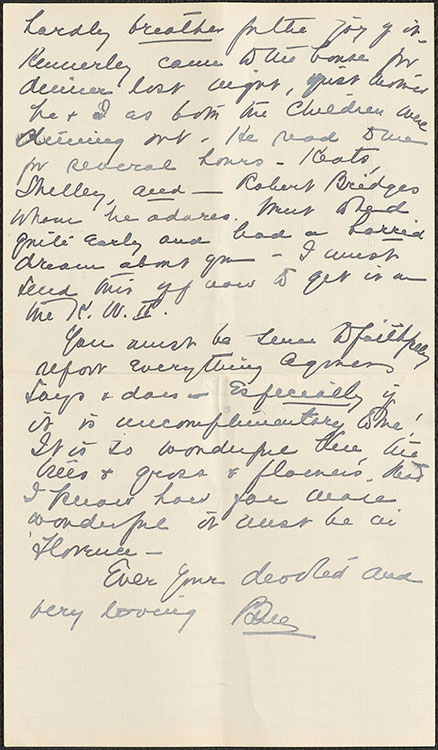 hardly breathe for the joy of it
Kennerley came to the house for
dinner last night, just
he & I as both the children were
dining out. He read to me
for several hours - Keats,
Shelley, and - Robert Bridges
whom he adores. Went to bed
quite early and had a horrid
dream about you - I must
send this off now to get it on
the K. W. II.
You must be sure to faithfully
report everything Agnes
says & does - Especially if
it is uncomplimentary to me!
It is so wonderful here the
trees & grass & flowers. But
I know how far more
wonderful it must be in
Florence -
Ever your devoted and
very loving Belle